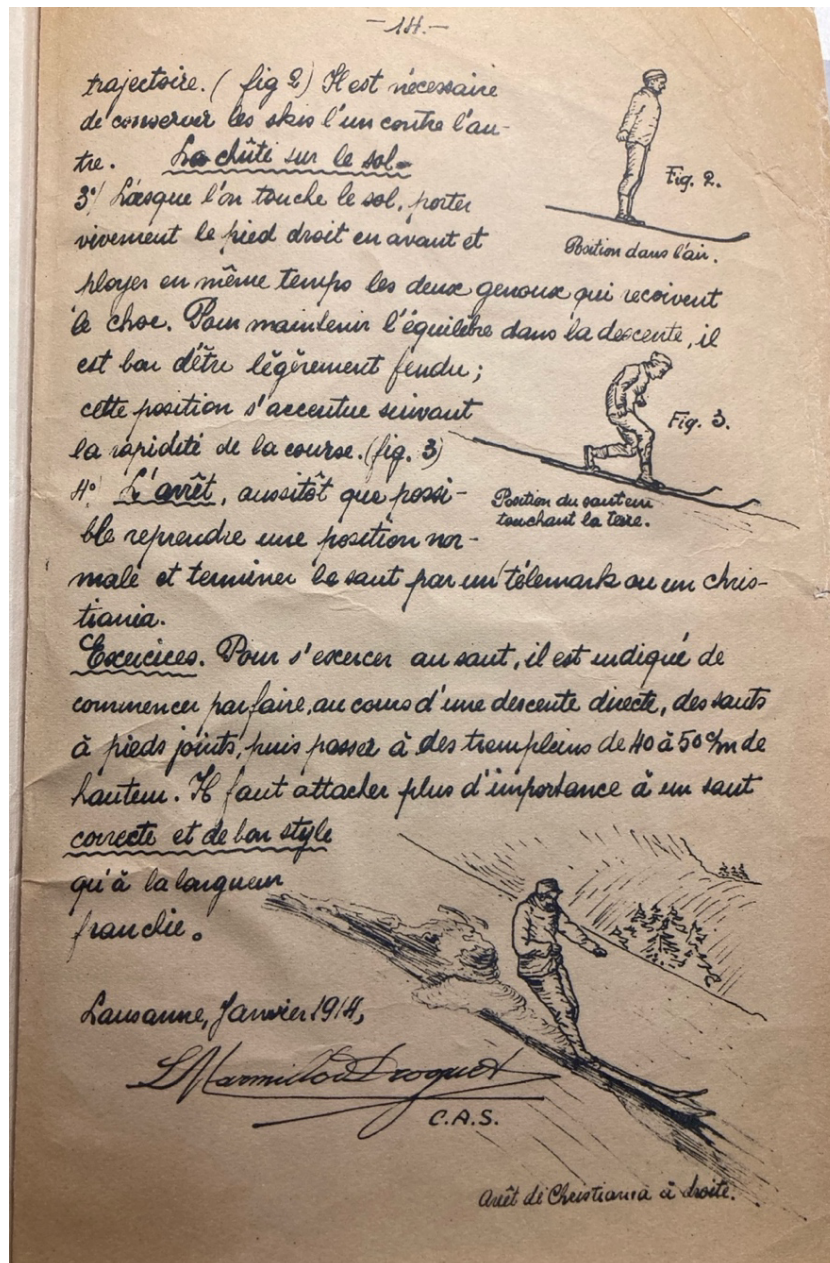 -14.-
trajectoire. ( fig 2) Il est nécessaire
de conserver les skis l'un contre l'au-
tre. La chûte sur le sol.
3°/ Lorsque l'on touche le sol, porter
vivement le pied droit en avant et
ployer en même temps les deux genoux qui reçoivent
le choc. Pour maintenir l'équilibre dans la descente, il
est bon d'être légèrement fendu ;
cette position s'accentue suivant
la rapidité de la course. (fig. 3)
4°/ L'arrêt, aussitôt que possi-
ble reprendre une position nor-
male et terminer le saut par un télemark ou un chris-
tiania.
Exercices. Pour s'exercer au saut, il est indiqué de
commencer par faire, au cours d'une descente directe, des sauts
à pieds joints, puis passer à des tremplins de 40 à 50 c/m de
hauteur. Il faut attacher plus d'importance à un saut
correcte et de bon style
qu'à la longueur
franchie.
Lausanne, Janvier 1914,
C.A.S.
Fig. 2.
Position dans l'air.
Fig. 3.
Position du sauteur
touchant la terre.
Arrêt de Christiania à droite.